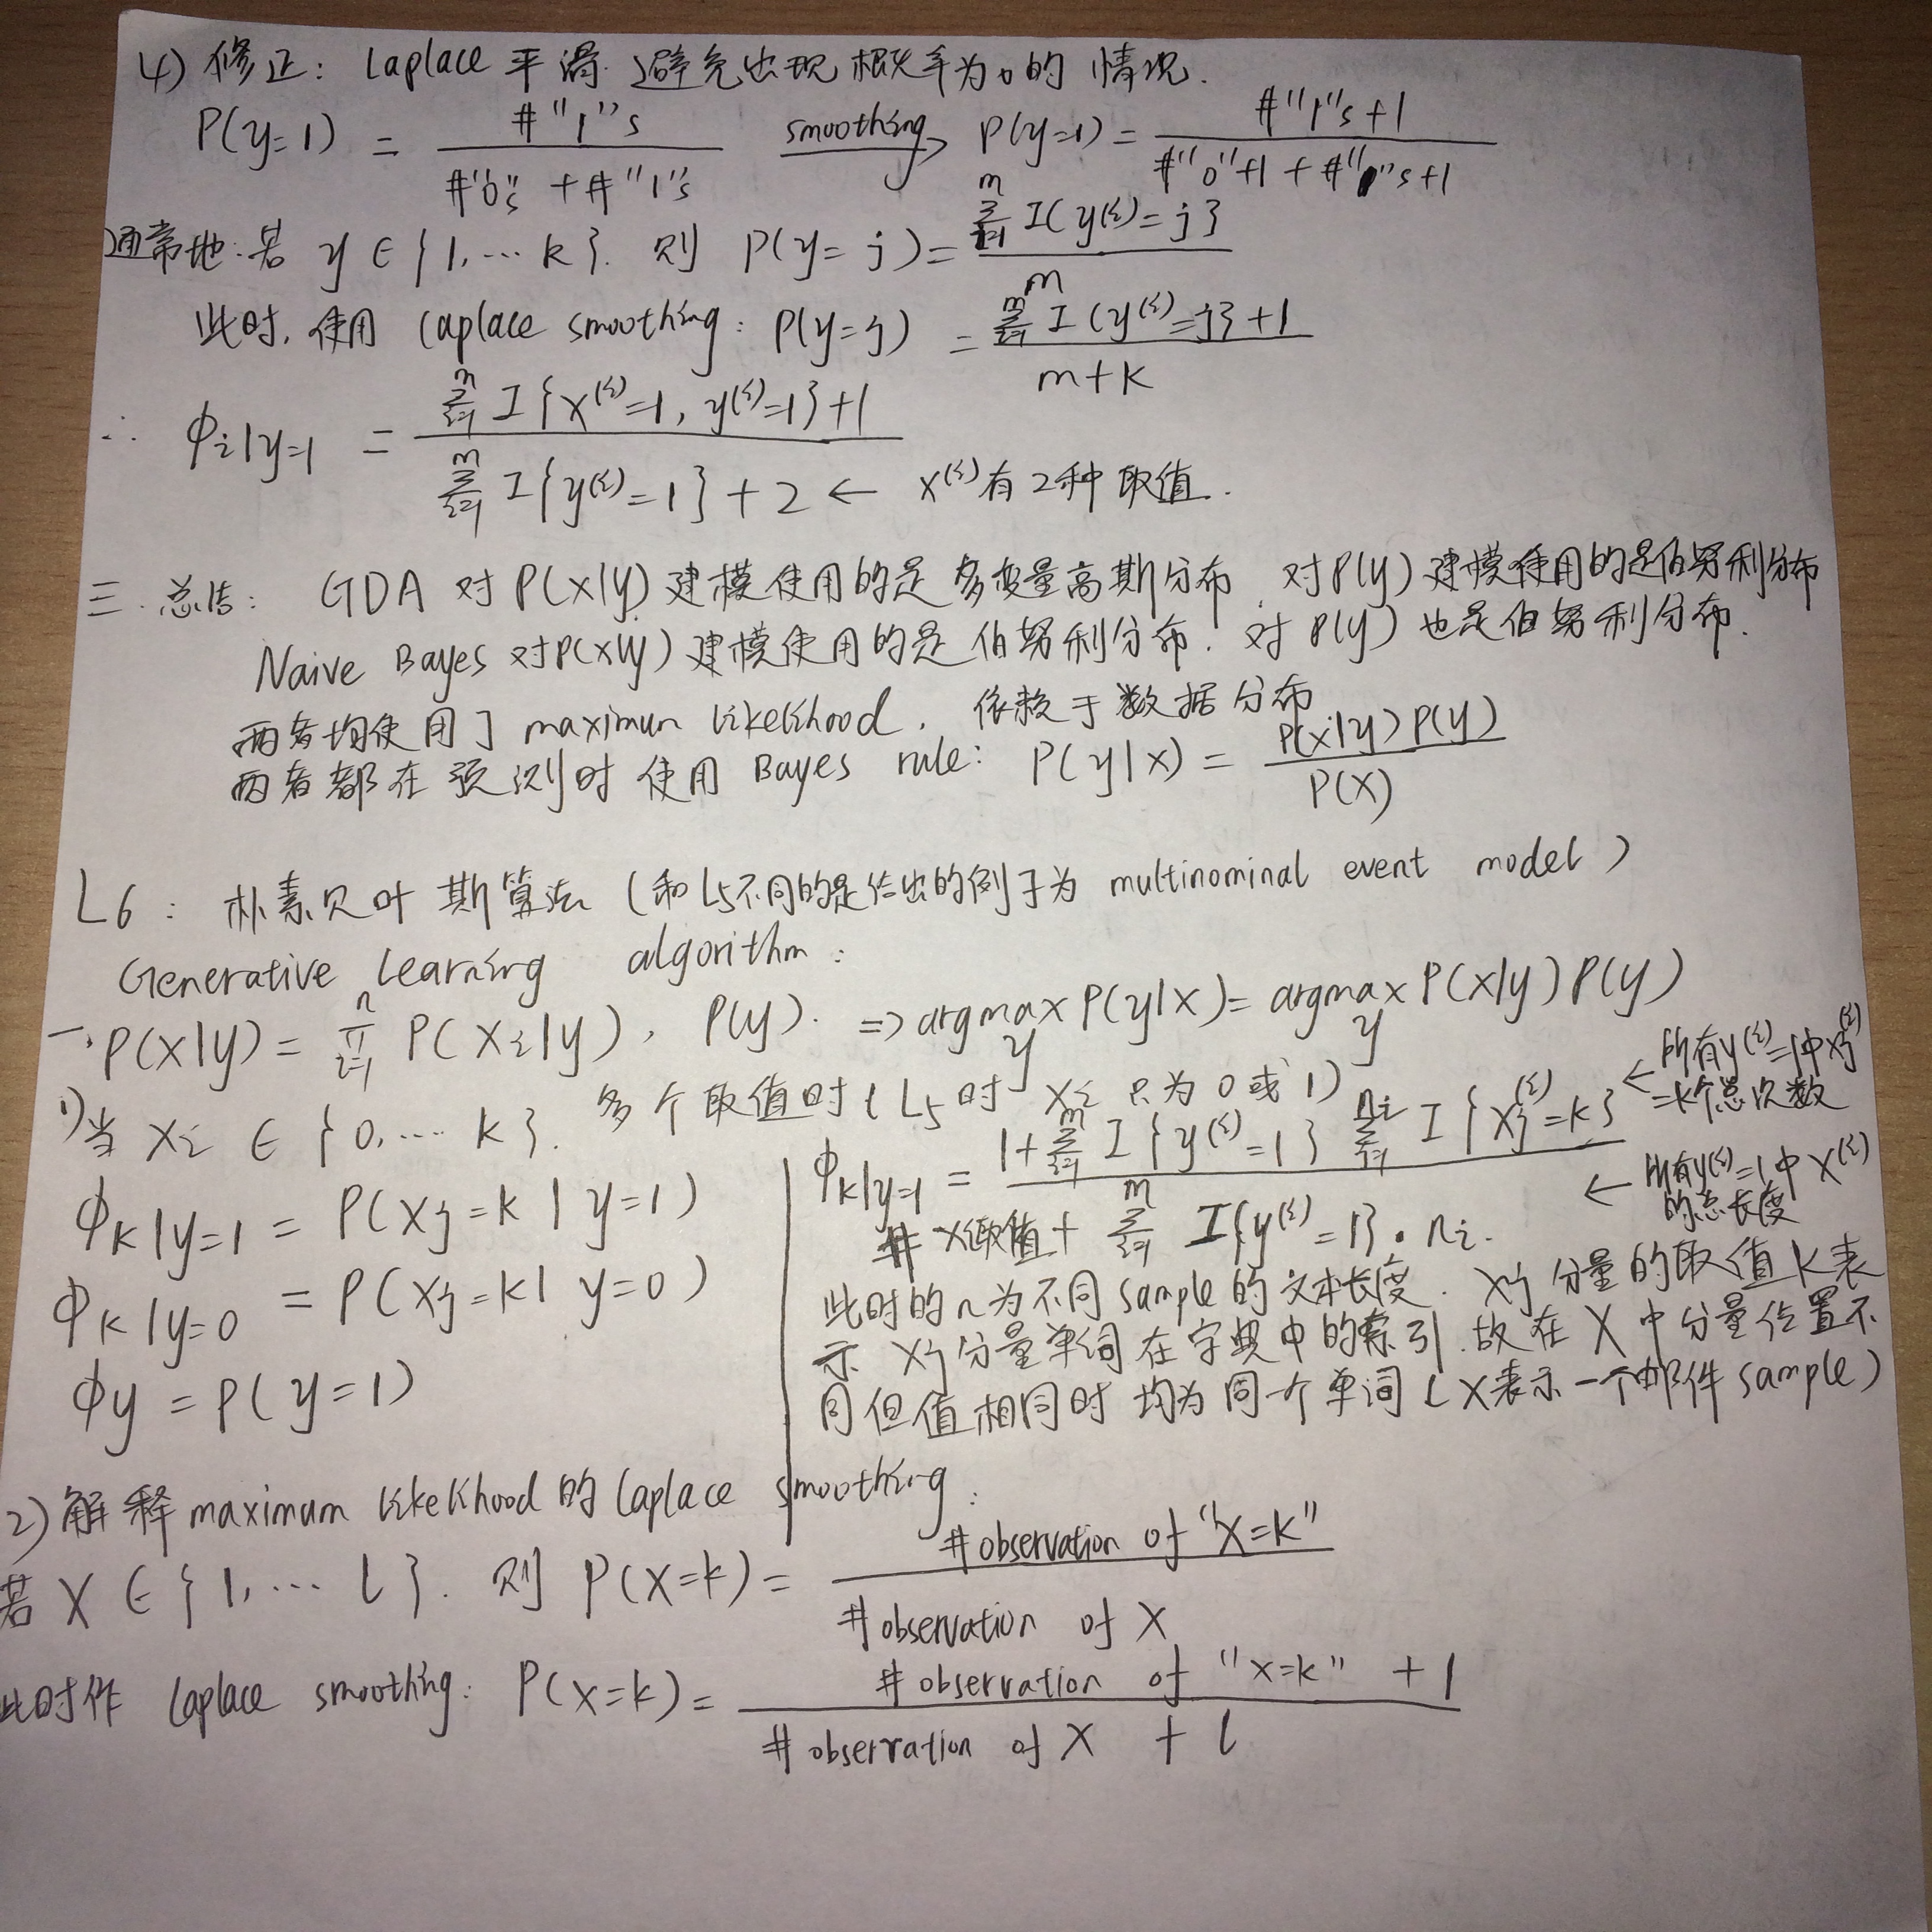 4) 修正: Laplace 平滑. 避免出现概率为0的情况.
P(y=1) = #"1"s / (#"0"s + #"1"s) smoothing→ P(y=1) = (#"1"s+1) / (#"0"+1 + #"1"s+1)
通常地: 若 y ∈ {1, ... k}. 则 P(y=j) = Σ_{i=1}^{m} I(y^(i)=j} / m
此时, 使用 Laplace smoothing: P(y=j) = (Σ_{i=1}^{m} I(y^(i)=j} + 1) / (m+k)
∴ φ_{i|y=1} = (Σ_{i=1}^{m} I{x^(i)=1, y^(i)=1}+1) / (Σ_{i=1}^{m} I{y^(i)=1} + 2) ← x^(i)有2种取值.
三. 总结: GDA 对 P(x|y) 建模使用的是多变量高斯分布, 对P(y)建模使用的是伯努利分布
Naive Bayes 对P(x|y)建模使用的是伯努利分布. 对P(y)也是伯努利分布.
两者均使用了 maximun likelihood, 依赖于数据分布
两者都在预测时使用 Bayes rule: P(y|x) = P(x|y)P(y) / P(x)
L6: 朴素贝叶斯算法 (和L5不同的是给出的例子为 multinominal event model)
Generative Learning algorithm:
一. P(x|y) = Π_{i=1}^{n} P(x_i|y), P(y). => argmax_y P(y|x) = argmax_y P(x|y)P(y)
1)当 x_i ∈ {0, ... k}. 多个取值时 (L5时 x_i 只为0或1)
φ_{k|y=1} = P(x_j=k | y=1)
φ_{k|y=0} = P(x_j=k | y=0)
φ_y = P(y=1)
φ_{k|y=1} = (1+Σ_{i=1}^{m} I{y^(i)=1} Σ_{j=1}^{n_i} I{x_j^(i)=k}) / (# x_i取值 + Σ_{i=1}^{m} I{y^(i)=1}·n_i.)
← 所有y^(i)=1中x_j^(i)
=k个总次数
← 所有y^(i)=1中x^(i)
的总长度
此时的n为不同sample的文本长度. x_j分量的取值k表
示 x_j分量单词在字典中的索引. 故在X中分量位置不
同但值相同时均为同一个单词 (X表示一个邮件sample)
2)解释 maximum likelihood 的 Laplace smoothing:
若 X ∈ {1, ... l}. 则 P(X=k) = # observation of "X=k" / # observation of X
此时作 Laplace smoothing: P(X=k) = (# observation of "X=k" + 1) / (# observation of X + l)